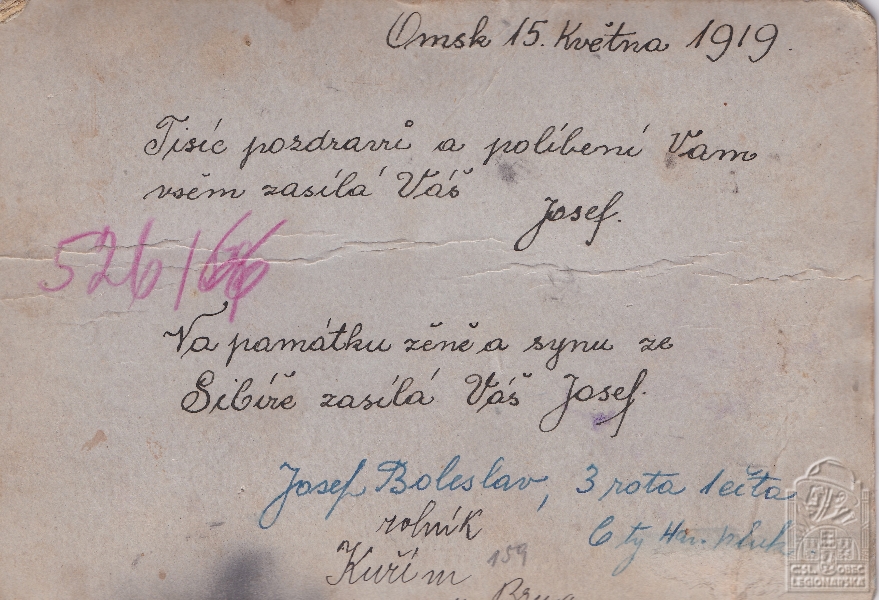 Omsk 15. Května 1919.
Tisíc pozdravů a políbení Vam
vsěm zasílá Váš
Josef.
526/66
Na památku zěně a synu ze
Sibíře zasílá Váš Josef.
Josef Boleslav, 3 rota 1 četa
6 ty
rolník
Kuřím 159
u Brna
ČSL. OBEC
LEGIONÁŘSKÁ